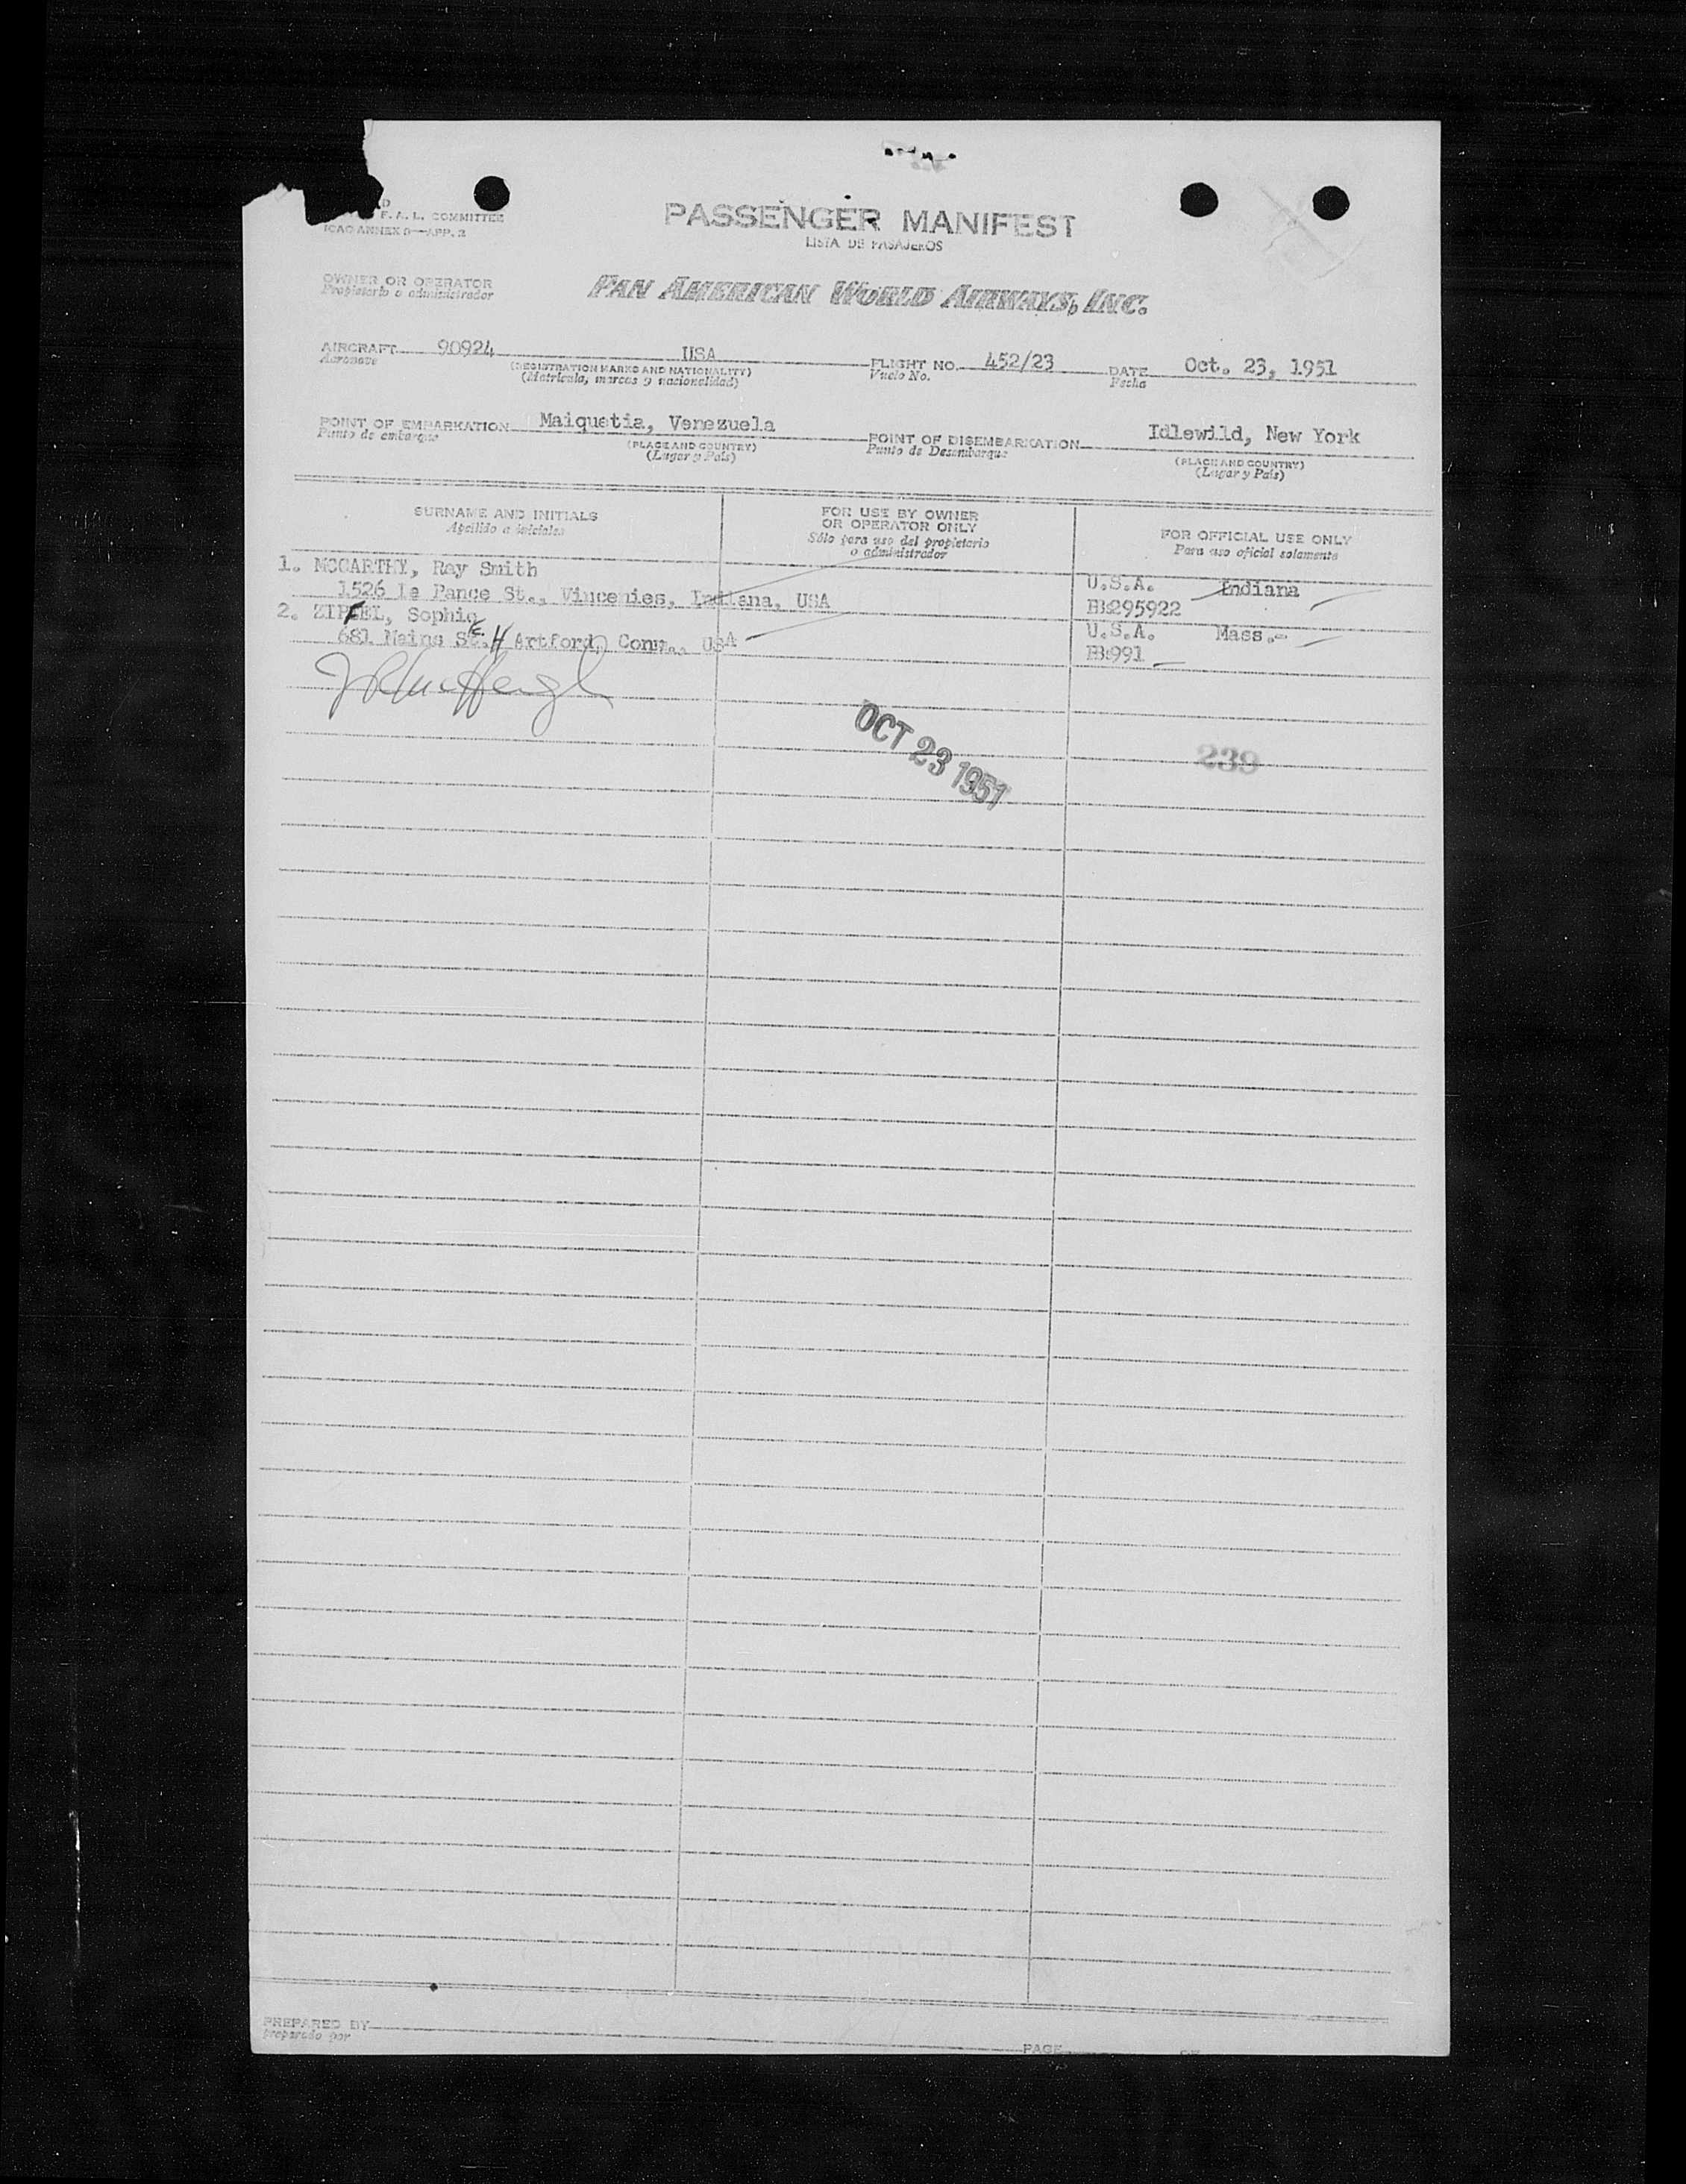 D
F. A. L. COMMITTEE
ICAO ANNEX 9—APP. 2
PASSENGER MANIFEST
LISTA DE PASAJEROS
OWNER OR OPERATOR
Propietario o administrador
PAN AMERICAN WORLD AIRWAYS, INC.
AIRCRAFT 90924 USA FLIGHT NO. 452/23 DATE Oct. 23, 1951
Aeronave (REGISTRATION MARKS AND NATIONALITY) Vuelo No. Fecha
(Matrícula, marcas y nacionalidad)
POINT OF EMBARKATION Maiquetia, Venezuela POINT OF DISEMBARKATION Idlewild, New York
Punto de embarque (PLACE AND COUNTRY) Punto de Desembarque (PLACE AND COUNTRY)
(Lugar y País) (Lugar y País)
SURNAME AND INITIALS FOR USE BY OWNER
OR OPERATOR ONLY FOR OFFICIAL USE ONLY
Apellido e iniciales Sólo para uso del propietario
o administrador Para uso oficial solamente
1. MCCARTHY, Ray Smith U.S.A. Indiana
1526 Le Pance St., Vincenies, Indiana, USA PB:295922
2. ZIPFEL, Sophie U.S.A. Mass.-
681 Maine St. HArtford, Conn., USA PB:991
OCT 23 1951
239
PREPARED BY
preparado por
PAGE OF